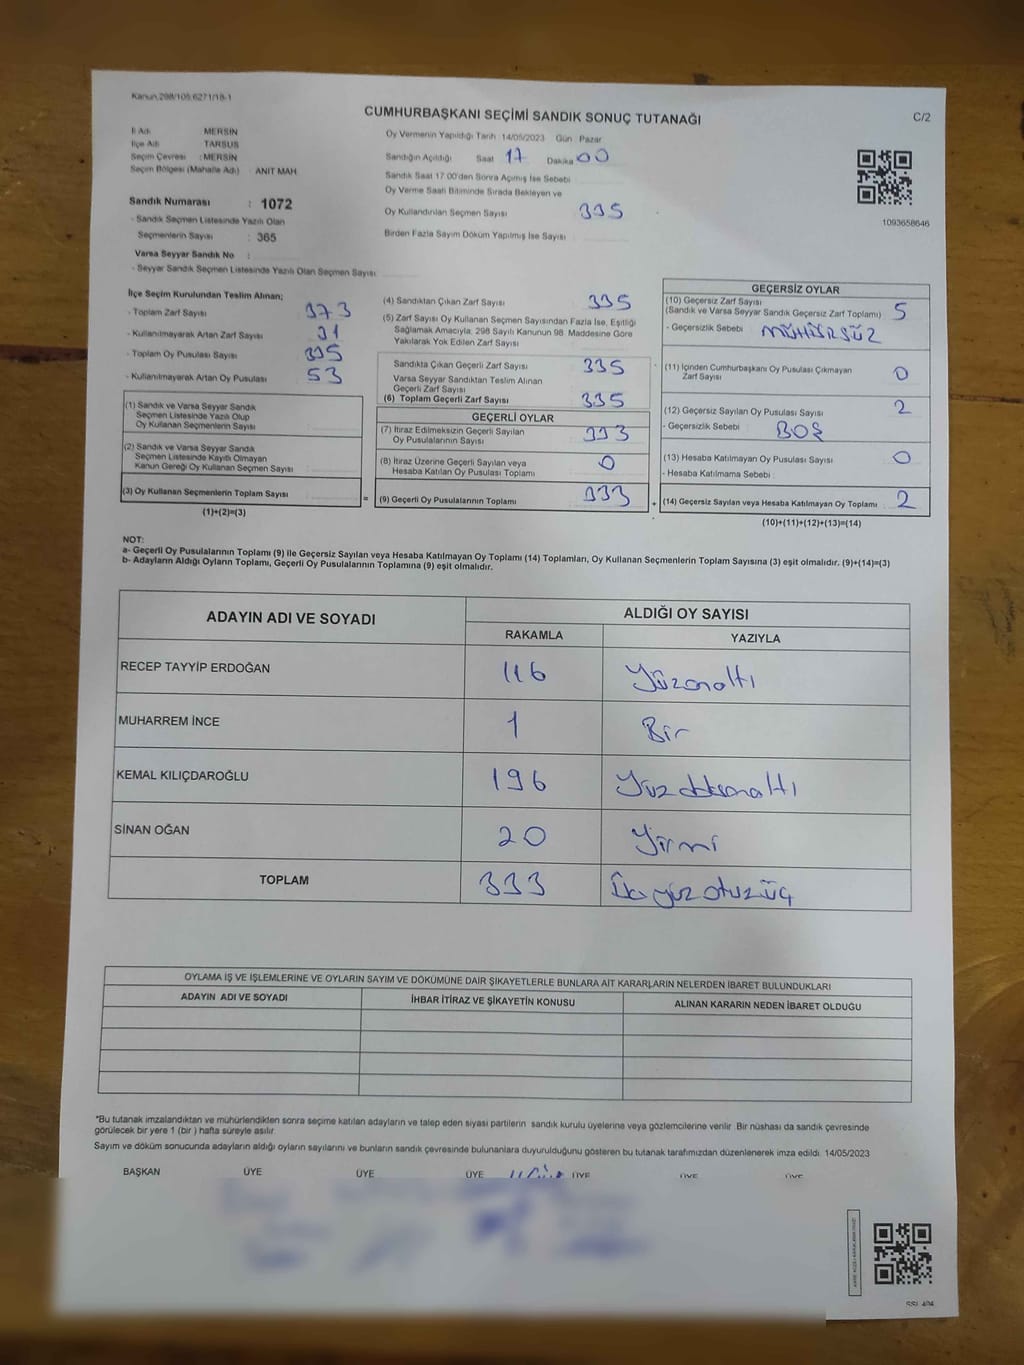 Kanun,298/105,6271/18-1
CUMHURBAŞKANI SEÇİMİ SANDIK SONUÇ TUTANAĞI
C/2
İl Adı : MERSİN
İlçe Adı : TARSUS
Seçim Çevresi : MERSİN
Seçim Bölgesi (Mahalle Adı) : ANIT MAH
Sandık Numarası : 1072
- Sandık Seçmen Listesinde Yazılı Olan
Seçmenlerin Sayısı : 365
Varsa Seyyar Sandık No :
- Seyyar Sandık Seçmen Listesinde Yazılı Olan Seçmen Sayısı
Oy Vermenin Yapıldığı Tarih 14/05/2023 Gün Pazar
Sandığın Açıldığı Saat 17 Dakika 00
Sandık Saat 17.00'den Sonra Açılmış İse Sebebi
Oy Verme Saati Bitiminde Sırada Bekleyen ve
Oy Kullandırılan Seçmen Sayısı 335
Birden Fazla Sayım Döküm Yapılmış İse Sayısı :
1093658646
İlçe Seçim Kurulundan Teslim Alınan;
- Toplam Zarf Sayısı : 373
- Kullanılmayarak Artan Zarf Sayısı : 31
- Toplam Oy Pusulası Sayısı
- Kullanılmayarak Artan Oy Pusulası : 53
(1) Sandık ve Varsa Seyyar Sandık
Seçmen Listesinde Yazılı Olup
Oy Kullanan Seçmenlerin Sayısı :
(2) Sandık ve Varsa Seyyar Sandık
Seçmen Listesinde Kayıtlı Olmayan
Kanun Gereği Oy Kullanan Seçmen Sayısı :
(3) Oy Kullanan Seçmenlerin Toplam Sayısı :
(1)+(2)=(3)
=
(4) Sandıktan Çıkan Zarf Sayısı : 335
(5) Zarf Sayısı Oy Kullanan Seçmen Sayısından Fazla İse, Eşitliği
Sağlamak Amacıyla, 298 Sayılı Kanunun 98. Maddesine Göre
Yakılarak Yok Edilen Zarf Sayısı :
Sandıkta Çıkan Geçerli Zarf Sayısı : 335
Varsa Seyyar Sandıktan Teslim Alınan
Geçerli Zarf Sayısı
(6) Toplam Geçerli Zarf Sayısı : 335
GEÇERLİ OYLAR
(7) İtiraz Edilmeksizin Geçerli Sayılan
Oy Pusulalarının Sayısı : 333
(8) İtiraz Üzerine Geçerli Sayılan veya
Hesaba Katılan Oy Pusulası Toplamı : 0
(9) Geçerli Oy Pusulalarının Toplamı : 333
+
GEÇERSİZ OYLAR
(10) Geçersiz Zarf Sayısı
(Sandık ve Varsa Seyyar Sandık Geçersiz Zarf Toplamı) : 5
- Geçersizlik Sebebi : MÜHÜRSÜZ
(11) İçinden Cumhurbaşkanı Oy Pusulası Çıkmayan
Zarf Sayısı : 0
(12) Geçersiz Sayılan Oy Pusulası Sayısı : 2
- Geçersizlik Sebebi : BOŞ
(13) Hesaba Katılmayan Oy Pusulası Sayısı : 0
- Hesaba Katılmama Sebebi :
(14) Geçersiz Sayılan veya Hesaba Katılmayan Oy Toplamı : 2
(10)+(11)+(12)+(13)=(14)
NOT:
a- Geçerli Oy Pusulalarının Toplamı (9) ile Geçersiz Sayılan veya Hesaba Katılmayan Oy Toplamı (14) Toplamları, Oy Kullanan Seçmenlerin Toplam Sayısına (3) eşit olmalıdır. (9)+(14)=(3)
b- Adayların Aldığı Oyların Toplamı, Geçerli Oy Pusulalarının Toplamına (9) eşit olmalıdır.
ADAYIN ADI VE SOYADI
ALDIĞI OY SAYISI
RAKAMLA YAZIYLA
RECEP TAYYİP ERDOĞAN 116 Yüzonaltı
MUHARREM İNCE 1 Bir
KEMAL KILIÇDAROĞLU 196 Yüzdoksanaltı
SİNAN OĞAN 20 Yirmi
TOPLAM 333 Üçyüzotuzüç
OYLAMA İŞ VE İŞLEMLERİNE VE OYLARIN SAYIM VE DÖKÜMÜNE DAİR ŞİKAYETLERLE BUNLARA AİT KARARLARIN NELERDEN İBARET BULUNDUKLARI
ADAYIN ADI VE SOYADI İHBAR İTİRAZ VE ŞİKAYETİN KONUSU ALINAN KARARIN NEDEN İBARET OLDUĞU
*Bu tutanak imzalandıktan ve mühürlendikten sonra seçime katılan adayların ve talep eden siyasi partilerin sandık kurulu üyelerine veya gözlemcilerine verilir. Bir nüshası da sandık çevresinde
görülecek bir yere 1 (bir ) hafta süreyle asılır.
Sayım ve döküm sonucunda adayların aldığı oyların sayılarını ve bunların sandık çevresinde bulunanlara duyurulduğunu gösteren bu tutanak tarafımızdan düzenlenerek imza edildi. 14/05/2023
BAŞKAN ÜYE ÜYE ÜYE ÜYE ÜYE ÜYE